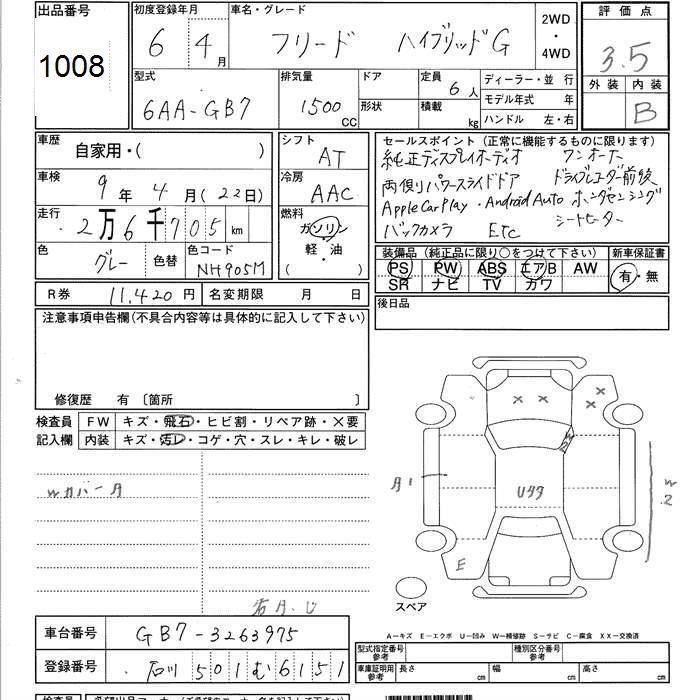 出品番号
1008
初度登録年月
6 年 4 月
車名・グレード
フリード ハイブリッドG
2WD
・
4WD
評価点
3.5
外装 内装
B
型式
6AA-GB7
排気量
1500 CC
ドア
形状
定員 6 人
積載 kg
ディーラー・並 行
モデル年式 年
ハンドル 左・右
車歴
自家用・( )
車検
9 年 4 月 (22日)
走行
2万6千705 km
色 グレー 色替 色コード NH905M
シフト
AT
冷房
AAC
燃料
ガソリン
軽・油
( )
セールスポイント (正常に機能するものに限ります)
純正ディスプレイオーディオ ワンオーナー
両側パワースライドドア ドライブレコーダー前後
Apple CarPlay・Android Auto ホンダセンシング
バックカメラ Etc シートヒーター
装備品 (純正品に限り○をつけて下さい)
新車保証書
PS PW ABS エアB AW
SR ナビ TV カワ
有・無
R券 11,420 円 名変期限 月 日
後日品
注意事項申告欄(不具合内容等は具体的に記入して下さい)
修復歴 有 〔箇所 〕
検査員
記入欄
FW キズ・飛石・ヒビ割・リペア跡・×要
内装 キズ・汚レ・コゲ・穴・スレ・キレ・破レ
Wカバー
A1
Uタタ
W
2
E
スペア
A-キズ E-エクボ U-凹み W-補修跡 S-サビ C-腐食 XX-交換済
車台番号 GB7-3263975
登録番号 石川 501 む 6151
型式指定番号
参考
種別区分番号
参考
車庫証明用
参考
長さ 幅 高さ
検査員